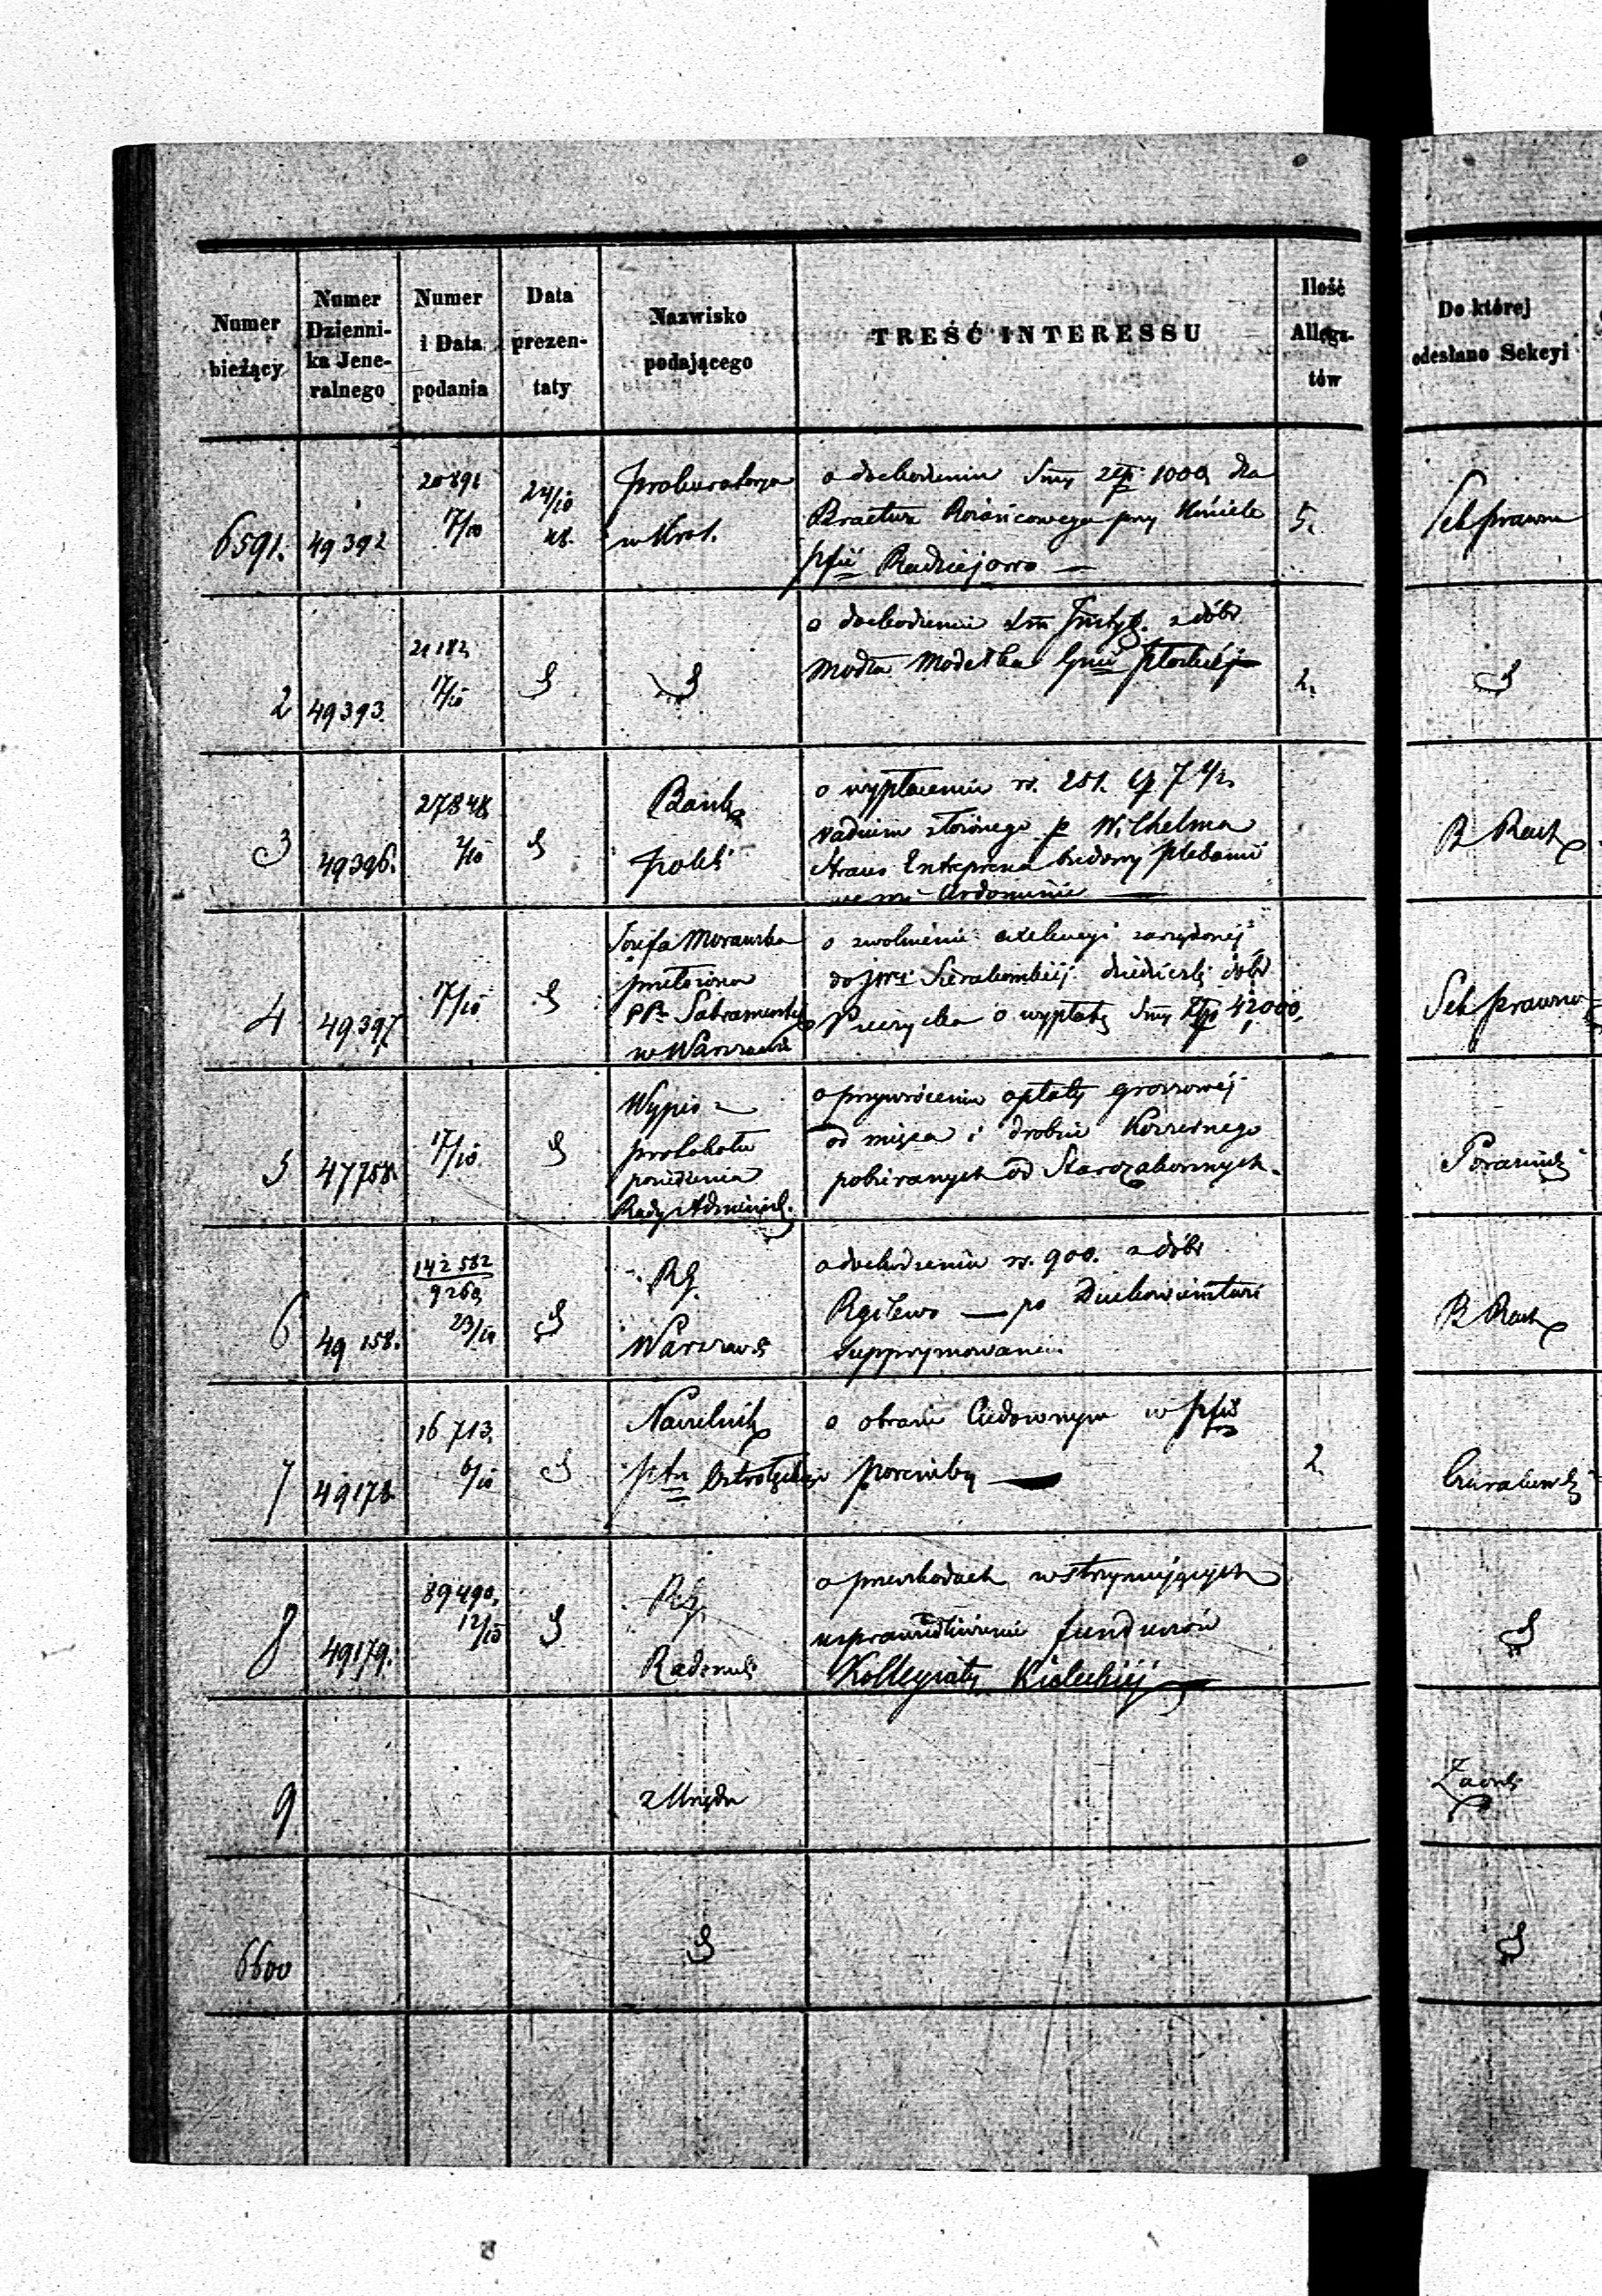 Numer
bieżący
Numer
Dzienni-
ka Jene-
ralnego
Numer
i Data
podania
Data
prezen-
taty
Nazwisko
podającego
TREŚĆ INTERESSU
Ilość
Allega-
tów
Do której
odesłano Sekcyi
6591.
49392
20891
17/10
24/10
Prokuratorya
w Król.
o dochodzeniu Smy złp 1000 dla
Bractwa Różańcowego przy Kościele
pfii Radziejowo —
5.
Sek prawna
2
49393.
21182
17/10
o dochodzeniu Instyt. z dóbr
Modła Modełka Gnii Płockiéj
2.
3
49396.
27848
2/10
Bank
Polsk
o wypłaceniu rs. 251. k 7 1/2
vadium złożonego p Wilhelma
Straus Entreprena budowy plebanii
we wsi
B Rach
4
49397
17/10
Józefa Morawska
przełożona
PP. Sakramentek
w Warszawie
o zwolnienie exekucyi zarządzonej
do dziedziczki dóbr
o wypłatę Smy Złp 42000,
Sek prawna
5
47758.
17/10
Wypis z
protokołu
posiedzenia
Rady Administ.
o przywrócenie opłaty groszowéj
od mięsa i drobiu Koszernego
pobieranych od Starozakonnych.
6
49158.
142582
9260
23/10
RG.
Warszaws
o dochodzeniu rs. 900. z dóbr
Rgilewo — po Duchowieństwie
Supprymowanem
B Rach
7
49178
16713,
6/10
Naczelnik
ptu Ostrołęckiego
o obrazie Cudownym w pfii
Porembą —
2.
8
49179.
89490,
12/10
RG.
Radoms
o przeszkodach wstrzymujących
usprawiedliwienie funduszów
Kollegiaty Kieleckiéj —
9
z Urzędu
6600